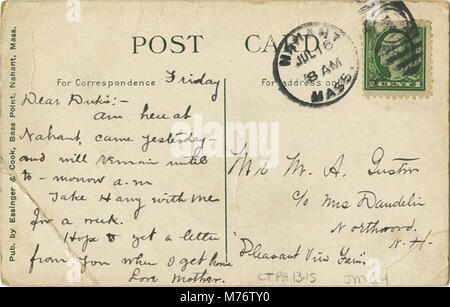 POST CARD
For Correspondence
For address only
Pub. by Essinger & Cook, Bass Point, Nahant, Mass.
NAHANT
JUL 16
8 AM
MASS.
Friday
Dear
am here at
Nahant, came yesterday
and will remain until
to-morrow a.m
Take Harry with me
for a week.
Hope to get a letter
from you when I get home
Love Mother.
M. A.
c/o Mrs
Northwood
N-H-
"Pleasant View Farm"
CTPA 1315
alamy
Image ID: M76TY0
www.alamy.com